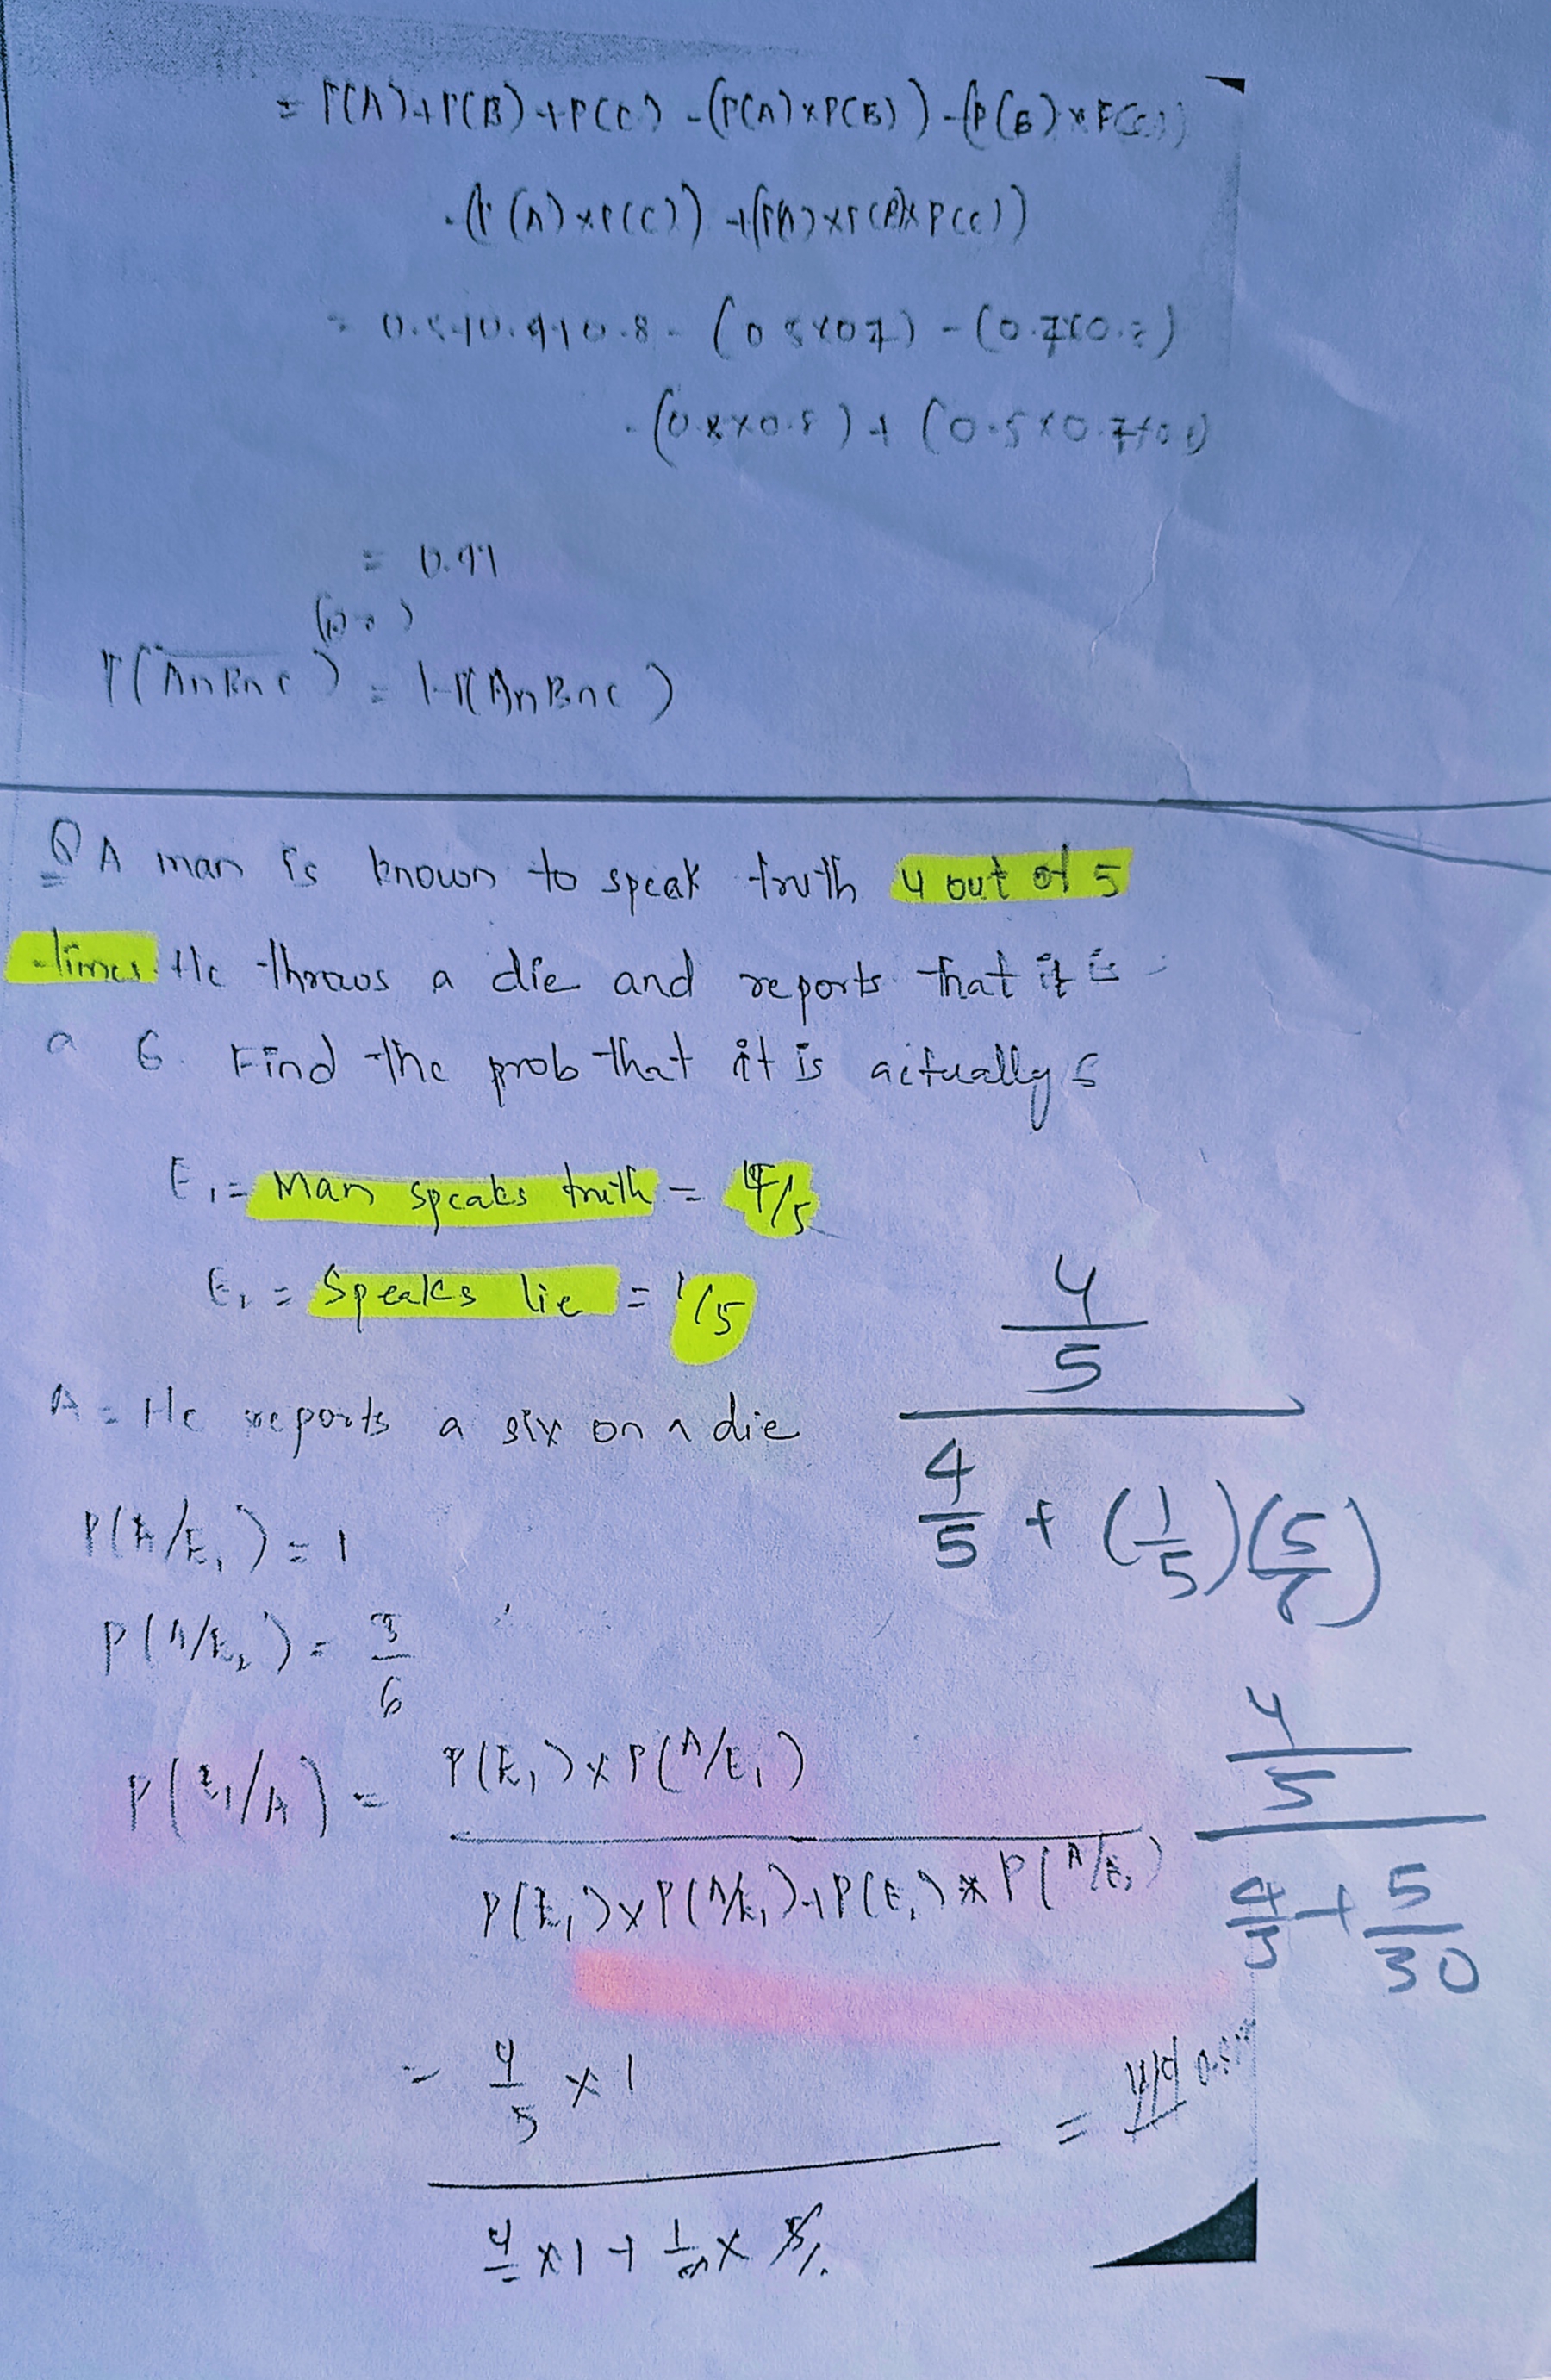 = P(A)+P(B)+P(C) -(P(A)×P(B)) -(P(B)×P(C))
-(P(A)×P(C)) +(P(A)×P(B)×P(C))
- (0.5×0.7) - (0.7×0.
+ (0.5×0.7×0.
=
P(A∩B∩C) = 1-P(A∩B∩C)
Q A man is known to speak truth 4 out of 5
times. He throws a die and reports that it is
a 6. Find the prob that it is actually
E₁= Man speaks truth = 4/5
= Speaks lie = 1/5
A = He reports a six on a die
P(A/E₁) = 1
P(A/E₂) =
6
P(E₁/A) = P(E₁)×P(A/E₁)
P(E₁)×P(A/E₁)+P(E₂)×P(A/E₂)
= 4/5 × 1
=
4 ×1 + 1/5 ×
4
5
4/5 + (1/5)(5/6)
4
5
4/5 + 5/30